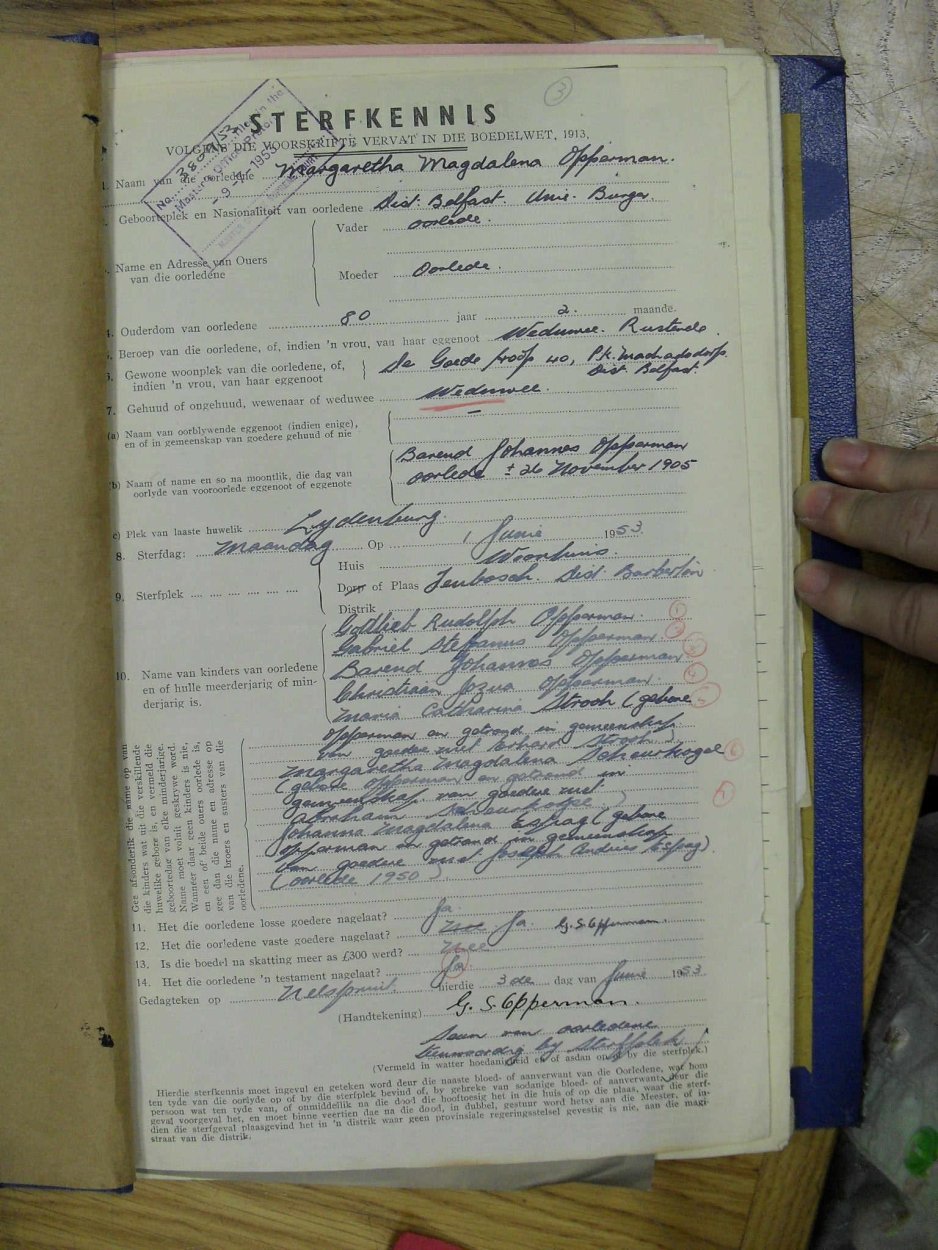 3
STERFKENNIS
VOLGENS DIE VOORSKRIFTE VERVAT IN DIE BOEDELWET, 1913.
No. 3804/53
1953
Naam van die oorledene Margaretha Magdalena Opperman.
Geboorteplek en Nasionaliteit van oorledene Dist. Belfast. Unie. Burger
Name en Adresse van Ouers van die oorledene
Vader oorlede.
Moeder Oorlede.
Ouderdom van oorledene 80 jaar 2. maande.
Beroep van die oorledene, of, indien 'n vrou, van haar eggenoot Weduwee. Rustende.
6. Gewone woonplek van die oorledene, of, De Goede Hoop 40, Pk. Machadodorp.
indien 'n vrou, van haar eggenoot Dist. Belfast.
7. Gehuud of ongehuud, wewenaar of weduwee Weduwee.
(a) Naam van oorblywende eggenoot (indien enige), –
en of in gemeenskap van goedere gehuud of nie
Barend Johannes Opperman
(b) Naam of name en so na moontlik, die dag van oorlede ± 26 November 1905
oorlyde van vooroorlede eggenoot of eggenote
c) Plek van laaste huwelik Lydenburg.
8. Sterfdag: Maandag Op 1 Junie 1953
9. Sterfplek
Huis Woonhuis.
Dorp of Plaas Tenbosch. Dist. Barberton
Distrik
10. Name van kinders van oorledene
en of hulle meerderjarig of min-
derjarig is.
Gottlieb Rudolph Opperman 1
Gabriel Stefanus Opperman 2
Barend Johannes Opperman 3
Christiaan Jozua Opperman. 4
Maria Catharina Stroh (gebore 5
Opperman en getroud in gemeenskap
van goedere met Erhard Stroh)
Margaretha Magdalena 6
(gebore Opperman en getroud in
gemeenskap van goedere met
Abraham
Johanna Magdalena Espag (gebore 7
Opperman en getroud in gemeenskap
van goedere met Joseph Andries Espag)
(oorlede 1950)
Gee afsonderlik die name op van
die kinders wat uit die verskillende
huwelike gebore is, en vermeld die
geboortedag van elke minderjarige.
Name moet voluit geskrywe word.
Wanneer daar geen kinders is nie,
en een of beide ouers oorlede is,
gee dan die name en adresse op
van die broers en susters van die
oorledene.
11. Het die oorledene losse goedere nagelaat? Ja
12. Het die oorledene vaste goedere nagelaat? Nee Ja G.S. Opperman.
13. Is die boedel na skatting meer as £300 werd? Nee
14. Het die oorledene 'n testament nagelaat? Ja
Gedagteken op Nelspruit. hierdie 3de dag van Junie 1953
(Handtekening) G. S. Opperman.
Seun van oorledene
teenwoordig by Sterfplek
(Vermeld in watter hoedanigheid en of asdan op of by die sterfplek.)
Hierdie sterfkennis moet ingevul en geteken word deur die naaste bloed- of aanverwant van die Oorledene, wat hom
ten tyde van die oorlyde op of by die sterfplek bevind of, by gebreke van sodanige bloed- of aanverwant, deur die
persoon wat ten tyde van, of onmiddellik na die dood die hooftoesig het in die huis of op die plaas, waar die sterf-
geval voorgeval het, en moet binne veertien dae na die dood, in dubbel, gestuur word hetsy aan die Meester, of in-
dien die sterfgeval plaasgevind het in 'n distrik waar geen provinsiale regeringsstelsel gevestig is nie, aan die magi-
straat van die distrik.